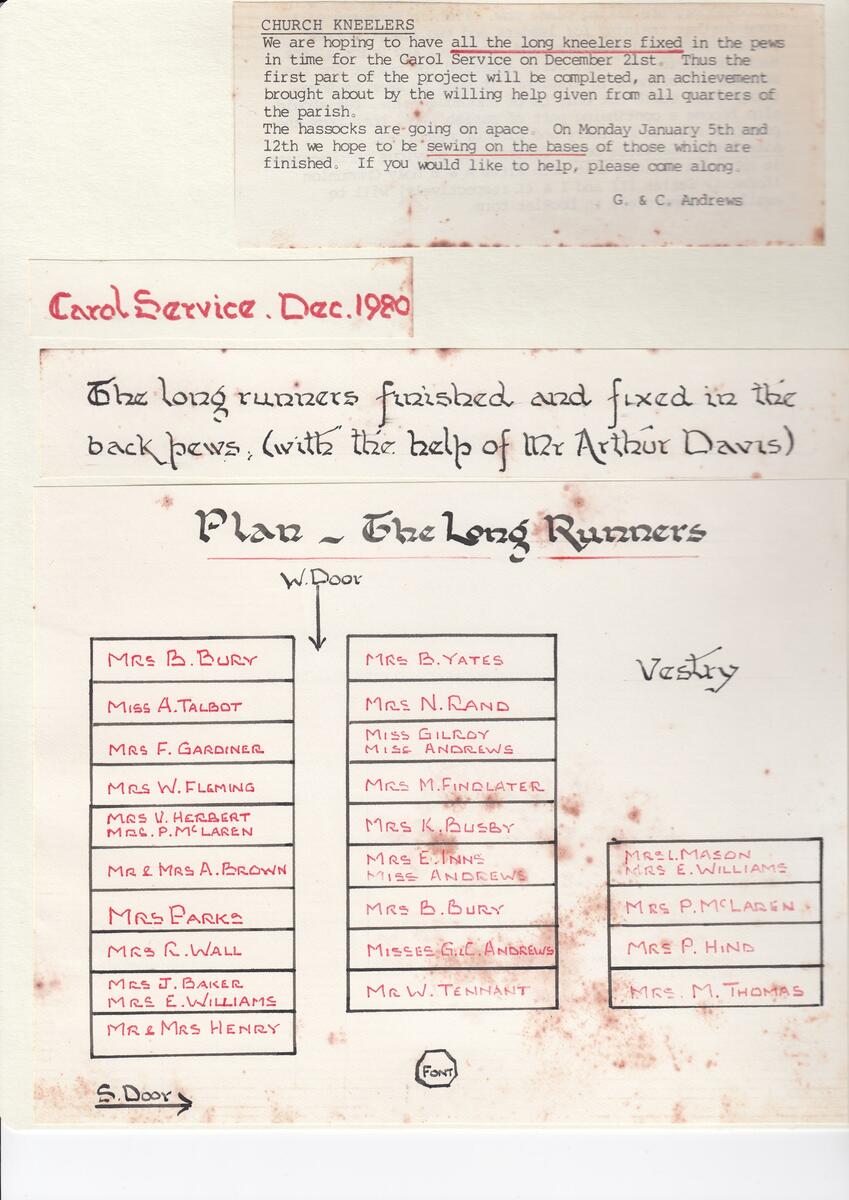 CHURCH KNEELERS
We are hoping to have all the long kneelers fixed in the pews
in time for the Carol Service on December 21st. Thus the
first part of the project will be completed, an achievement
brought about by the willing help given from all quarters of
the parish.
The hassocks are going on apace. On Monday January 5th and
12th we hope to be sewing on the bases of those which are
finished. If you would like to help, please come along.
G. & C. Andrews
Carol Service. Dec. 1980
The long runners finished and fixed in the
back pews, (with the help of Mr Arthur Davis)
Plan - The Long Runners
W. Door
MRS B. BURY
MISS A. TALBOT
MRS F. GARDINER
MRS W. FLEMING
MRS V. HERBERT
MRS. P. McLAREN
MR & MRS A. BROWN
MRS PARKS
MRS R. WALL
MRS J. BAKER
MRS E. WILLIAMS
MR & MRS HENRY
MRS B. YATES
MRS N. RAND
MISS GILROY
MISS ANDREWS
MRS M. FINDLATER
MRS K. BUSBY
MRS E. INNS
MISS ANDREWS
MRS B. BURY
MISSES G.&C. ANDREWS
MR W. TENNANT
Vestry
MRS I. MASON
MRS E. WILLIAMS
MRS P. McLAREN
MRS P. HIND
MRS. M. THOMAS
FONT
S. Door